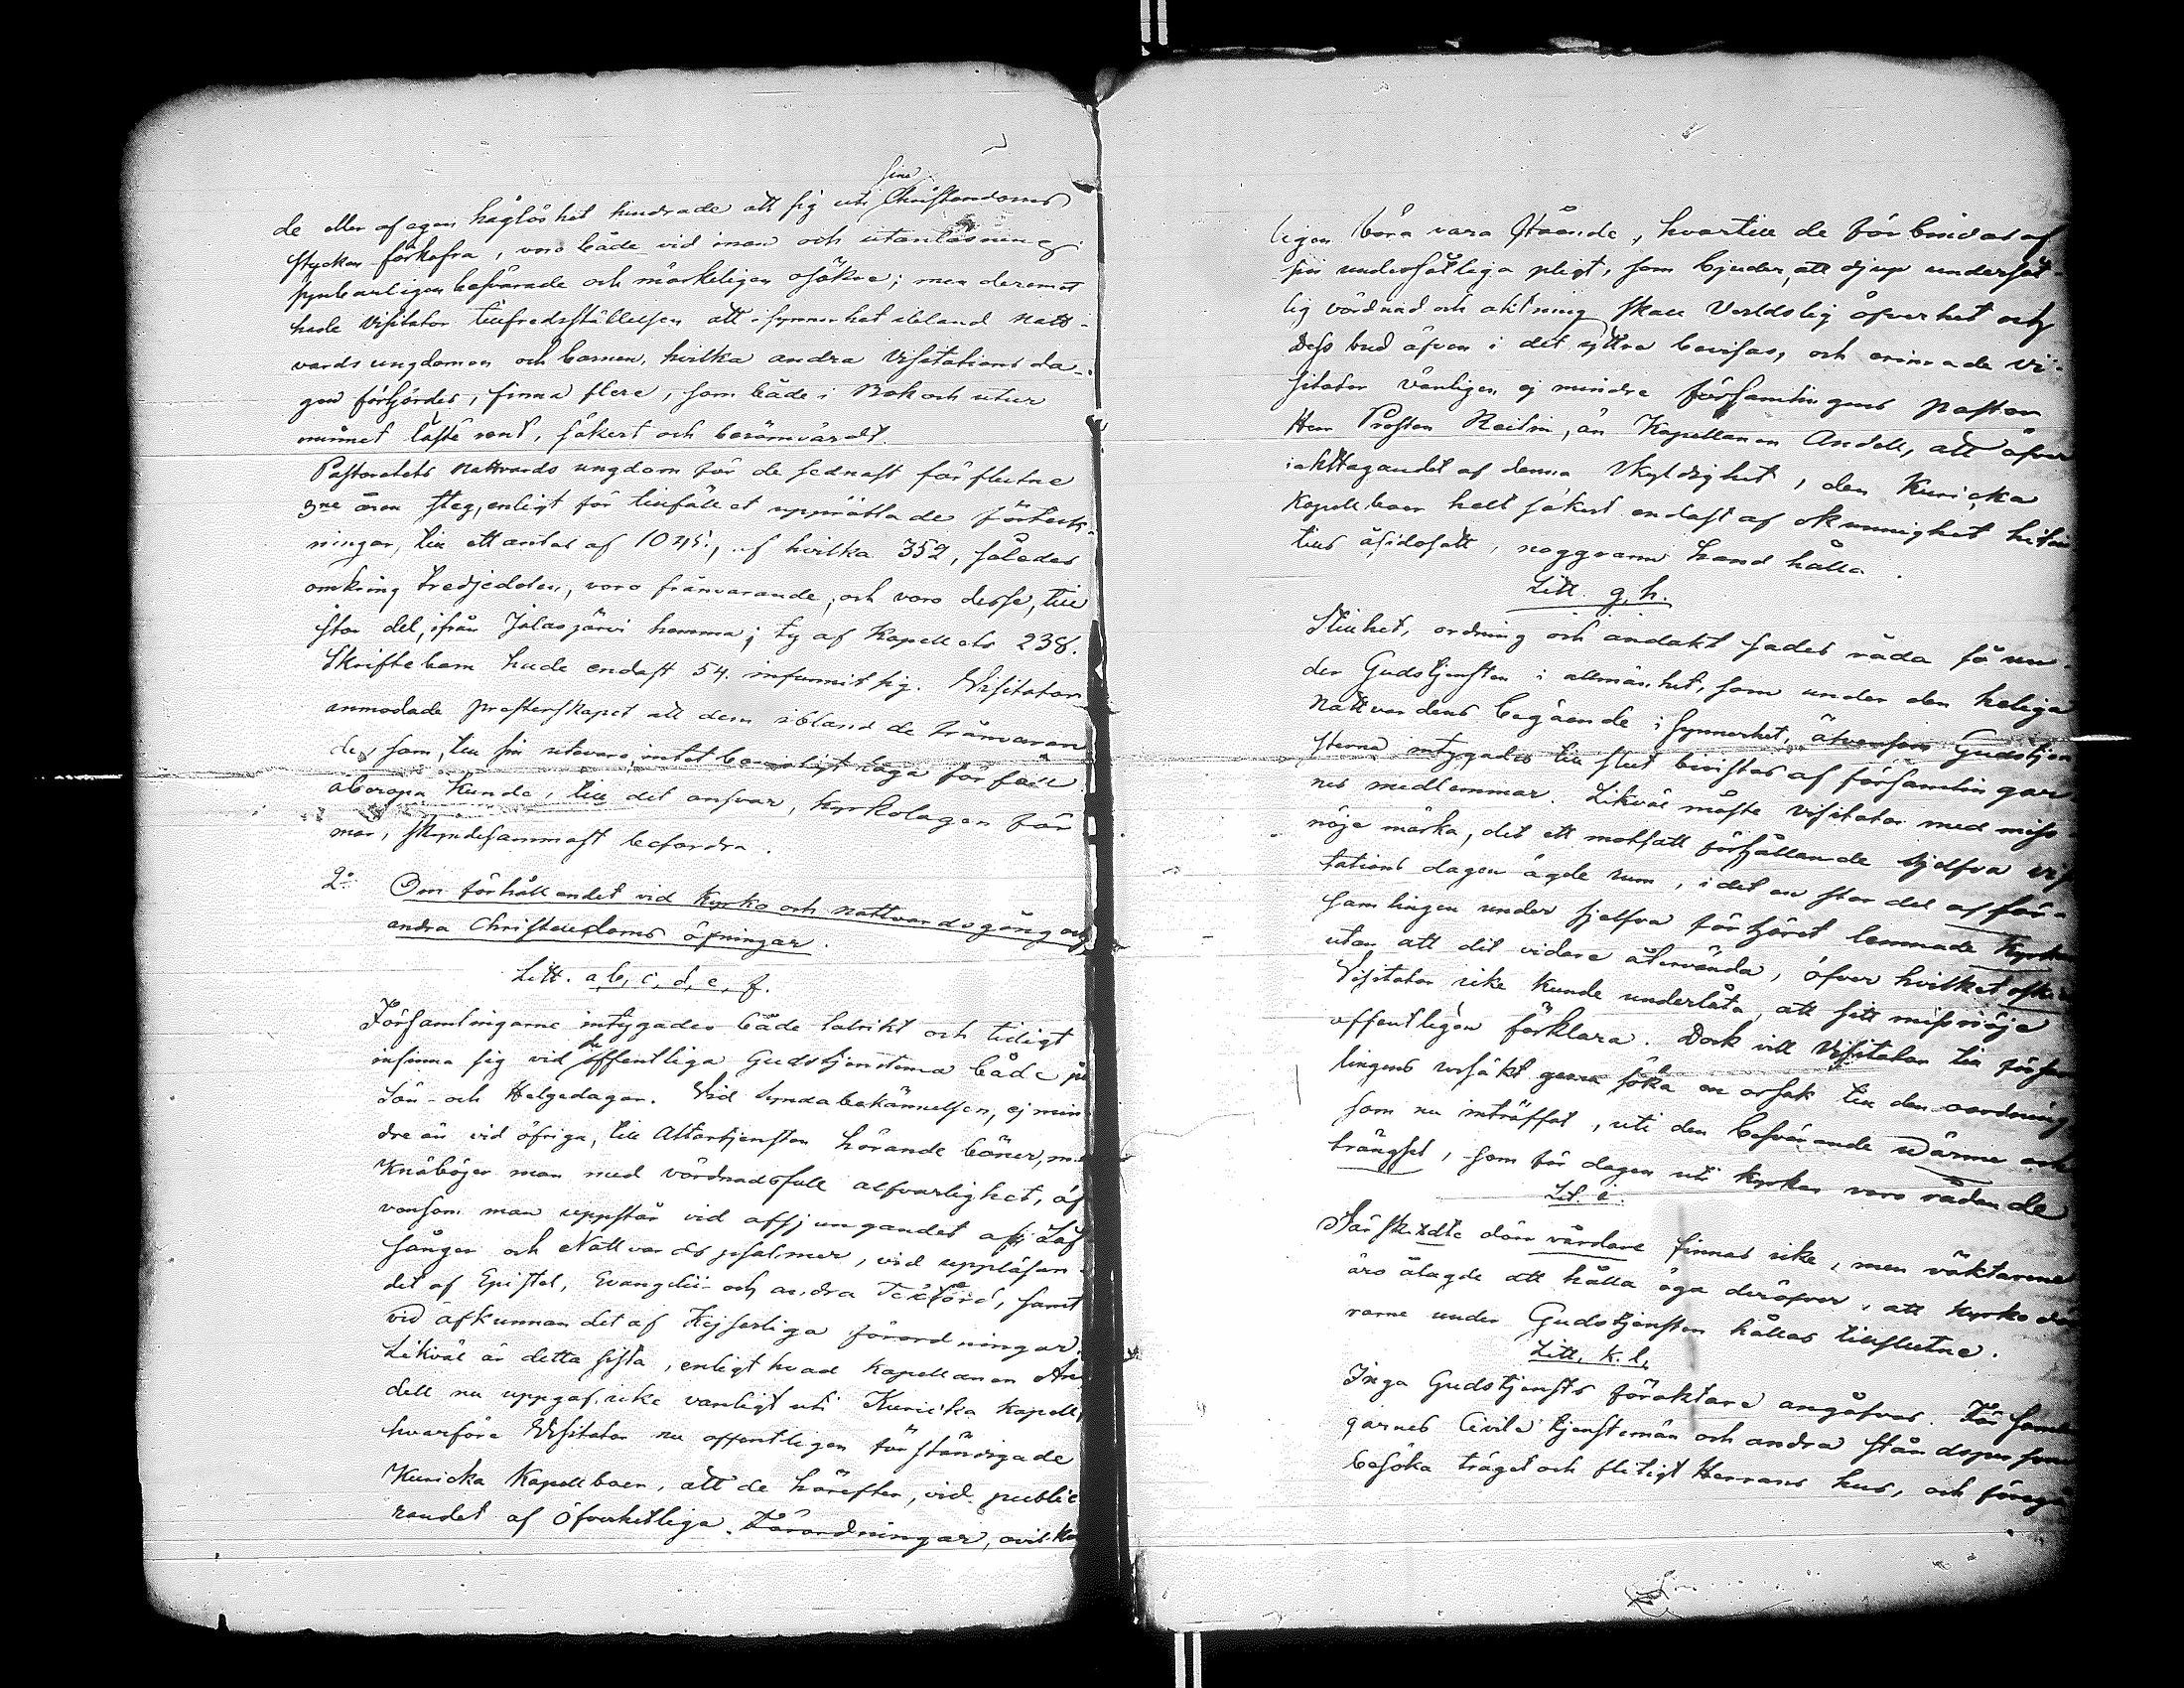 sine
de eller af egen håglöshet hindrade att sig uti Christendoms
stycken förkofra, voro både vid innan och utanläsning
synbarligen besvärade och märkeligen osäkre; men deremot
hade Visitator tillfredsställelsen att i synnerhet ibland natt-
vards ungdomen och barnen, hvilka andra Visitations da-
gen förhjördes, finna flere, som både i Bok och utur
minnet läste rent, säkert och berömvärdt.
Pastoratets nattvards ungdom för de sednast förflutne
3ne åren steg, enligt för tillfället upprättade förteck-
ningar, till ett antal af 1045, af hvilka 352, således
omkring tredjedelen, voro frånvarande, och voro desse, till
stor del, ifrån Jalasjärvi hemma; ty af Kapellets 238.
Skriftebarn hade endast 54. infunnit sig. Visitator
anmodade presterskapet att dem ibland de frånvaran
de, som, till sin utevaro, intet bevisligt laga förfall
åberopa kunde, till det ansvar, Kyrkolagen för
mår, skyndesammast befordra.
2o Om förhållandet vid Kyrko och nattvardsgång och
andra Christendoms öfningar.
Litt. a, b, c, d, e, f.
Församlingarne intygades både talrikt och tidigt
infinna sig vid de offentliga Gudstjensterna både på
Sön- och Helgedagar. Vid Syndabekännelsen, ej min
dre än vid öfriga, till Altartjensten hörande böner,
Knäböjer man med vördnadsfull alfvarlighet, äf
vensom man uppstår vid afsjungandet af Lof
sången och Nattvards psalmer, vid uppläsan-
det af Epistel, Evangelii- och andra Textord, samt
vid afkunnandet af Kejserliga förordningar.
Likväl är detta sista, enligt hvad Kapellanen An
dell nu uppgaf, icke vanligt uti Kuricka Kapell,
hvarföre Visitator nu offentligen förständigade
Kuricka Kapellboer, att de härefter, vid public
randet af Öfverhetliga Förordningar, ovilkor
ligen böra vara stående, hvartill de förbindas af
sin undersåtliga pligt, som bjuder, att djup undersåt-
lig vördnad och aktning skall Verldslig öfverhet och
Dess bud äfven i det yttre bevisas, och erinrade Vi-
sitator vänligen ej mindre församlingens pastor
Herr Prosten Reitin, än Kapellanen Andell, att öfver
iakttagandet af denna skyldighet, den Kuricka
Kapellboer helt säkert endast af okunnighet hitin
tills åsidosatt, noggrann hand hålla.
Litt. g, h.
Stillhet, ordning och andakt sades råda så un-
der Gudstjensten i allmänhet, som under den heliga
Nattvardens begående i synnerhet, äfvensom Gudstjen
sterna intygades till slut bevistas af församlingar
nes medlemmar. Likväl måste Visitator med miss
nöje märka, det ett motsatt förhållande sjelfva visi
tations dagen ägde rum, i det en stor del af för-
samlingen under sjelfva förhöret lemnade Kyrkan
utan att dit vidare återvända, öfver hvilket
Visitator icke kunde underlåta, att sitt missnöje
offentligen förklara. Dock vill Visitator till försam
lingens ursäkt gerna söka en orsak till den oordning
som nu inträffat, uti den besvärande värme och
trängsel, som för dagen uti kyrkan voro rådande
Lit. i.
Särskildte dörrvårdare finnas icke, men väktarene
äro ålagde att hålla öga deröfver, att kyrko dör
rarne under Gudstjensten hållas tillslutne.
Litt. k. l.
Inga Gudstjensts föraktare angåfvos. Församlin
garnes Civile tjenstemän och andra ståndspersoner
besöka träget och flitigt Herrans hus, och föregå